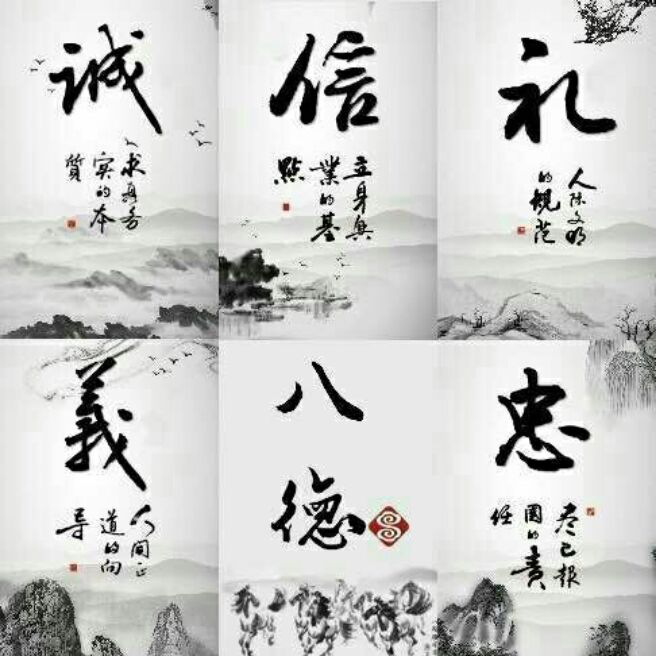 誠
求真务
实的本
質
信
立身興
業的基
點
礼
人际文明
的规范
義
人间正
道的向
导
八
德
忠
尽己报
國的責
任